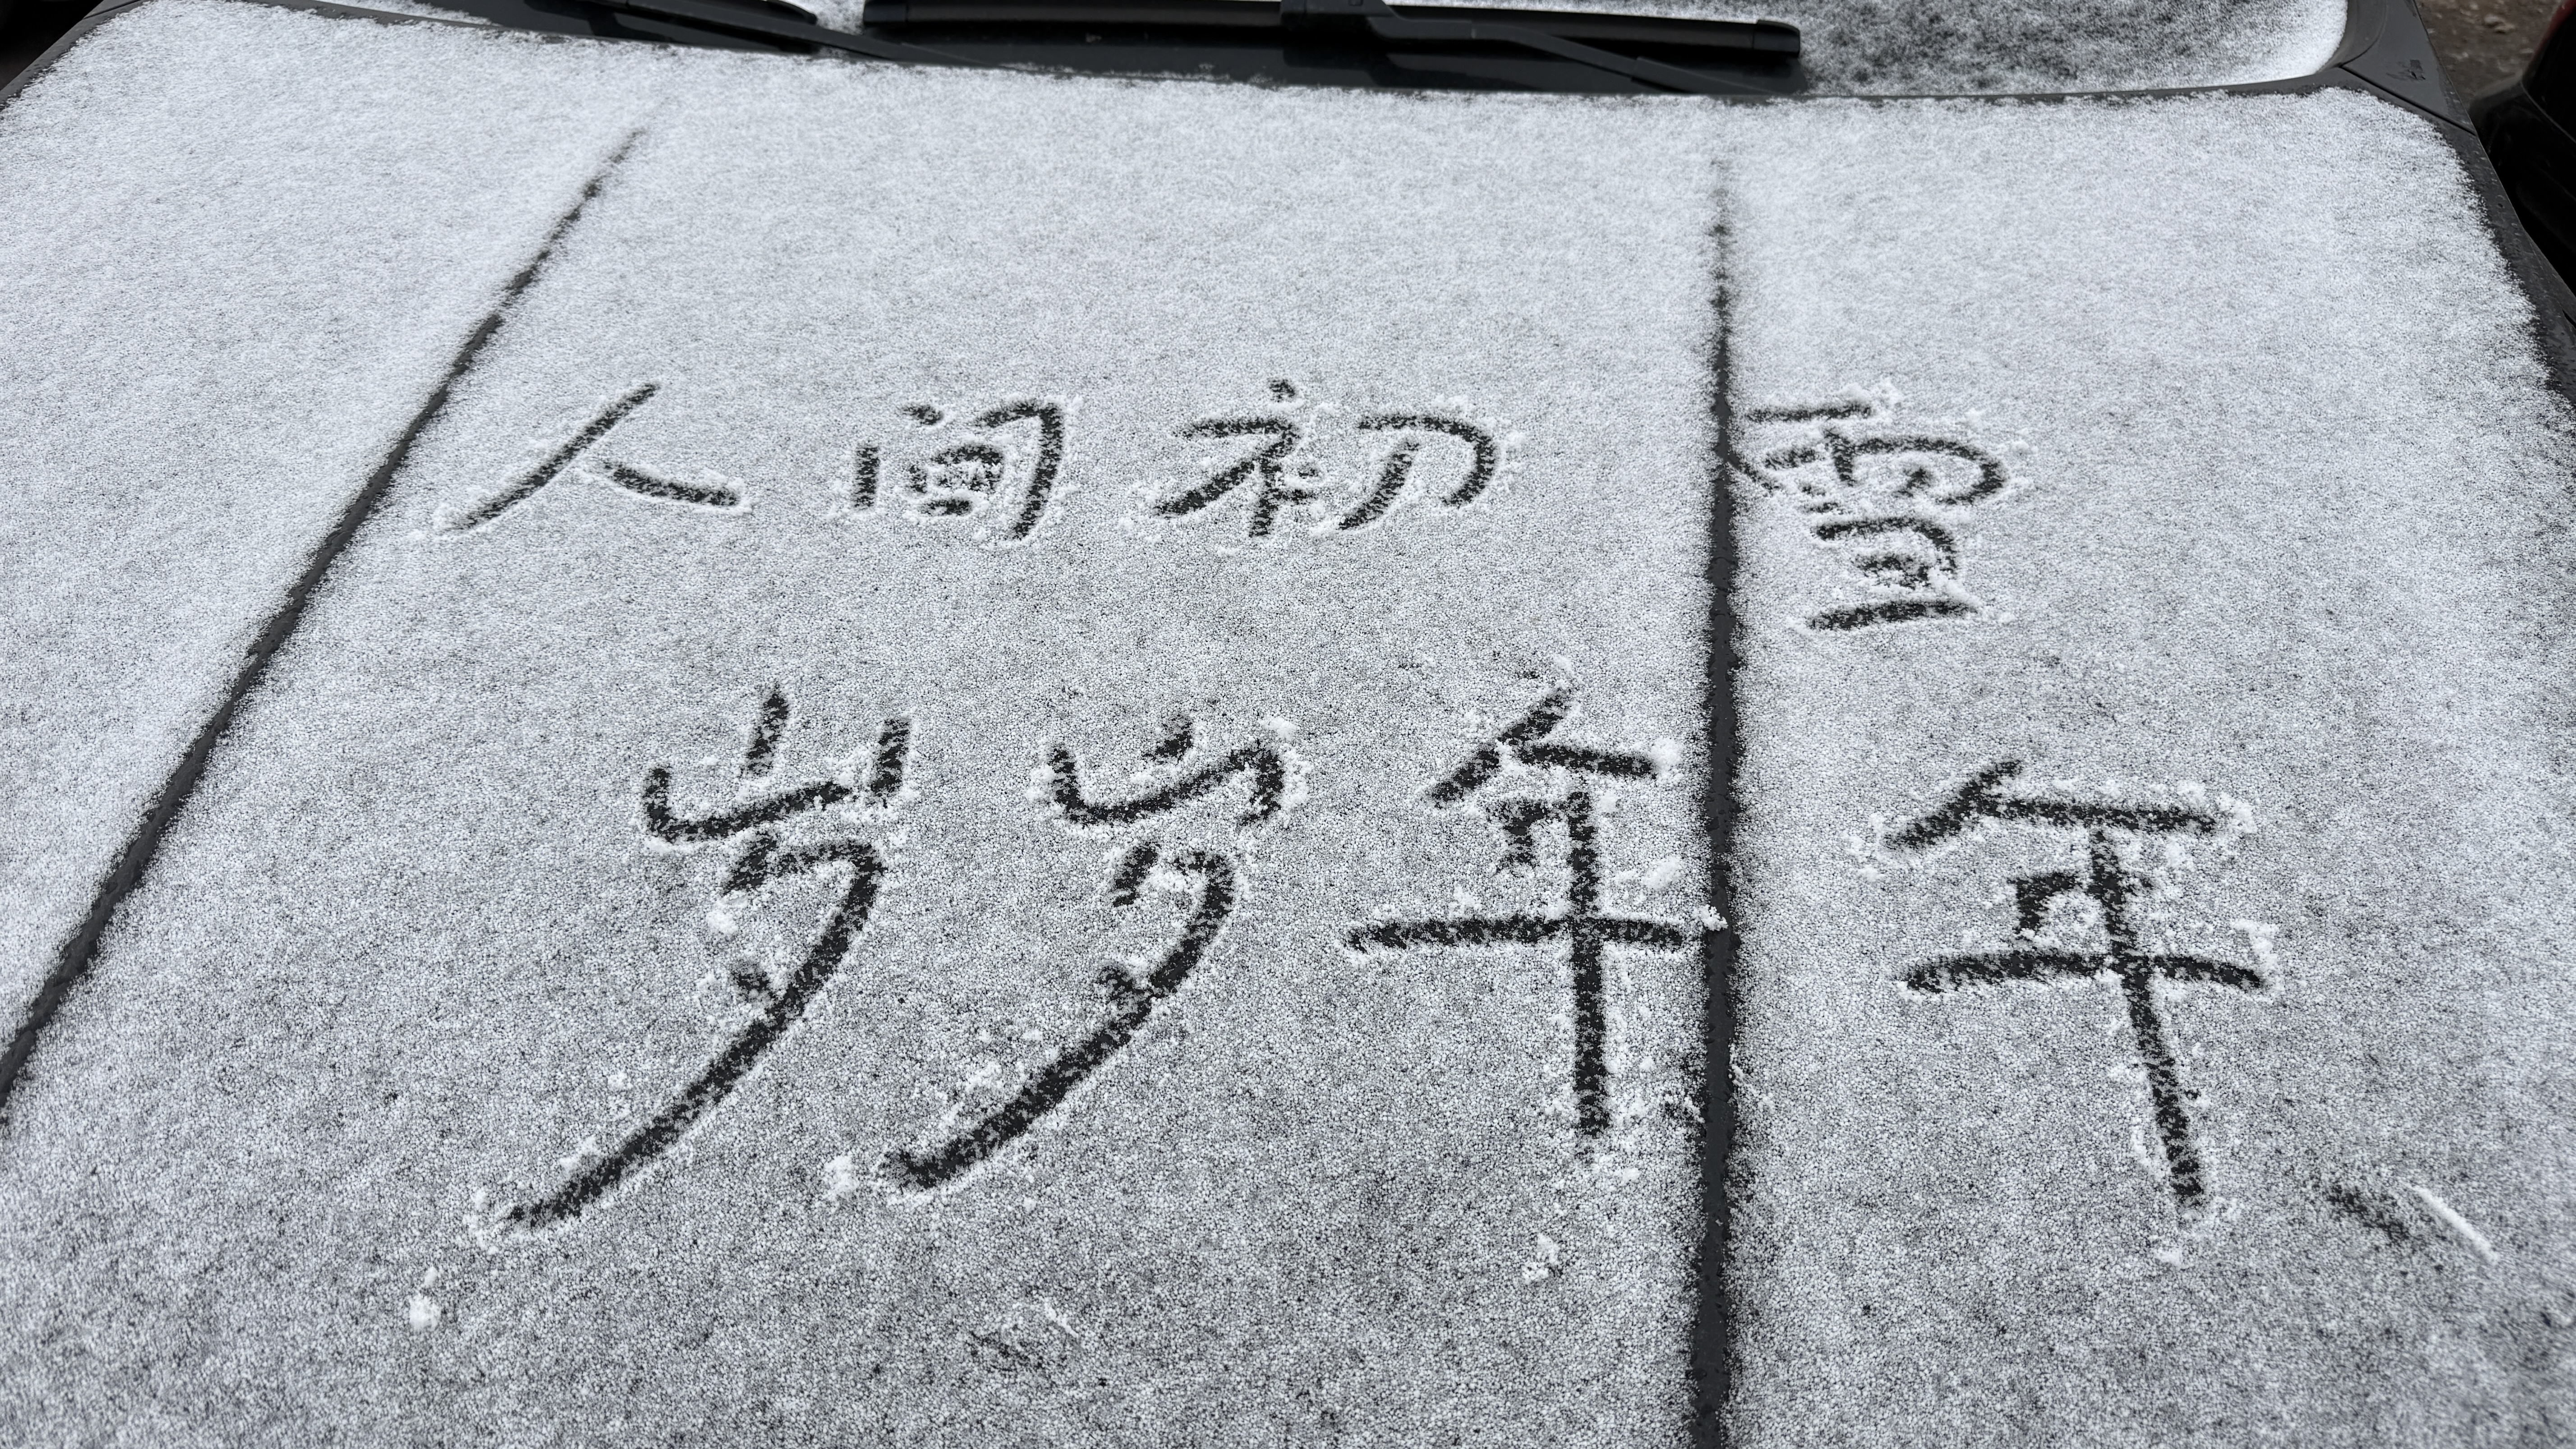 人间初雪
岁岁年年